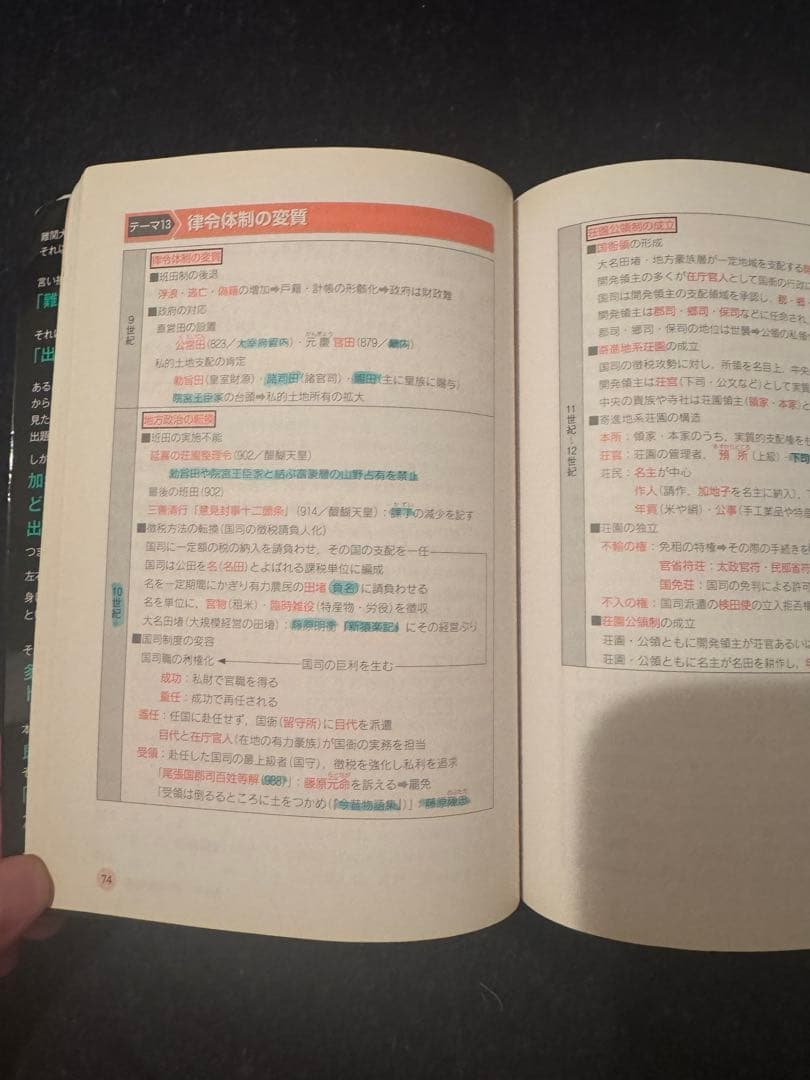 テーマ13 律令体制の変質
9世紀
律令体制の変質
■班田制の後退
浮浪・逃亡・偽籍の増加➡戸籍・計帳の形骸化➡政府は財政難
■政府の対応
直営田の設置
公営田(823/大宰府管内)・元慶官田(879/畿内)
がんぎょう
私的土地支配の肯定
勅旨田(皇室財源)・諸司田(諸官司)・賜田(主に皇族に賜与)
院宮王臣家の台頭➡私的土地所有の拡大
10世紀
地方政治の転換
■班田の実施不能
延喜の荘園整理令(902/醍醐天皇)
勅旨田や院宮王臣家と結ぶ富豪層の山野占有を禁止
最後の班田(902)
三善清行「意見封事十二箇条」(914/醍醐天皇):課丁の減少を記す
かてい
■徴税方法の転換(国司の徴税請負人化)
国司に一定額の税の納入を請負わせ,その国の支配を一任
国司は公田を名(名田)とよばれる課税単位に編成
名を一定期間にかぎり有力農民の田堵(負名)に請負わせる
名を単位に,官物(租米)・臨時雑役(特産物・労役)を徴収
大名田堵(大規模経営の田堵):藤原明衡『新猿楽記』にその経営ぶり
■国司制度の変容
国司職の利権化 国司の巨利を生む
成功:私財で官職を得る
重任:成功で再任される
遙任:任国に赴任せず,国衙(留守所)に目代を派遣
目代と在庁官人(在地の有力豪族)が国衙の実務を担当
受領:赴任した国司の最上級者(国守),徴税を強化し私利を追求
「尾張国郡司百姓等解(988)」:藤原元命を訴える➡罷免
もとなが
「受領は倒るるところに土をつかめ(『今昔物語集』)」:藤原陳忠
のぶただ
74
11世紀〜12世紀
荘園公領制の成立
■国衙領の形成
大名田堵・地方豪族層が一定地域を支配する
開発領主の多くが在庁官人として国衙の行政に
国司は開発領主の支配領域を承認し,郡・郷
開発領主は郡司・郷司・保司などに任命され,
郡司・郷司・保司の地位は世襲➡公領の私領
■寄進地系荘園の成立
国司の徴税攻勢に対し,所領を名目上,中央
開発領主は荘官(下司・公文など)として実質
中央の貴族や寺社は荘園領主(領家・本家)と
■寄進地系荘園の構造
本所:領家・本家のうち,実質的支配権をも
荘官:荘園の管理者,預所(上級)・下司
あずかりどころ
荘民:名主が中心
作人(請作,加地子を名主に納入),
年貢(米や絹)・公事(手工業品や特産
■荘園の独立
不輸の権:免租の特権➡その際の手続きを
官省符荘:太政官符・民部省符
国免荘:国司の免判による許可
不入の権:国司派遣の検田使の立入拒否権
■荘園公領制の成立
荘園・公領ともに開発領主が荘官あるい
荘園・公領ともに名主が名田を耕作し,
難関大
それに
言い換
「難
それに
「出
ある
から
見た
出題
しか
加
ど
出
つま
左右
身に
とい
そ
多
ト
本